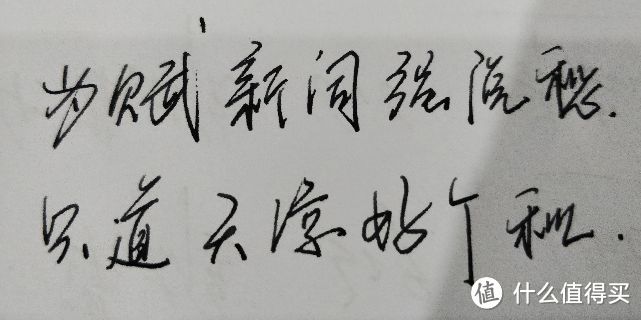 为赋新词强说愁.
只道天凉好个秋.
值 什么值得买